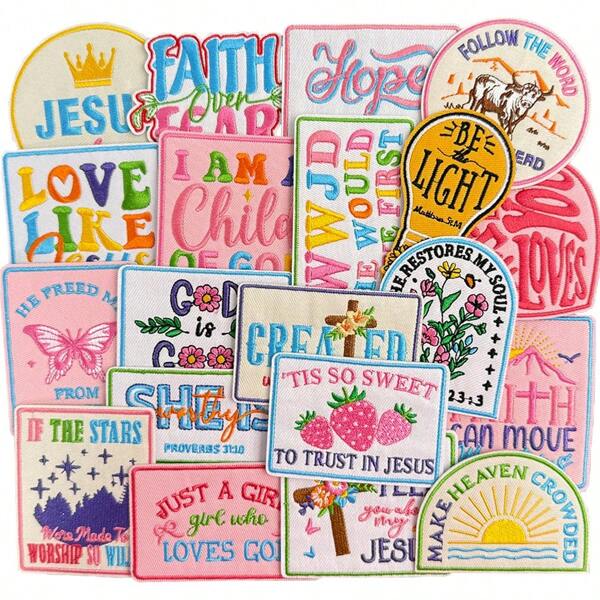 JESU
FAITH
Over
FEAR
Hope
FOLLOW THE WORD
ERD
LOVE
LIKE
Jesus
I AM A
Child
OF GOD
WWJD
WOULD
BE
the
LIGHT
Matthew 5:14
LOVES
HE FREED M
FROM
GOD
is
GOOD
CREATED
HE RESTORES MY SOUL
23:3
SHE IS
worthy
PROVERBS 31:10
'TIS SO SWEET
TO TRUST IN JESUS
ITH
CAN MOVE
IF THE STARS
Were Made To
WORSHIP SO WILL
JUST A GIRL
girl who
LOVES GOD
TELL
you about
my
JESU
MAKE HEAVEN CROWDED